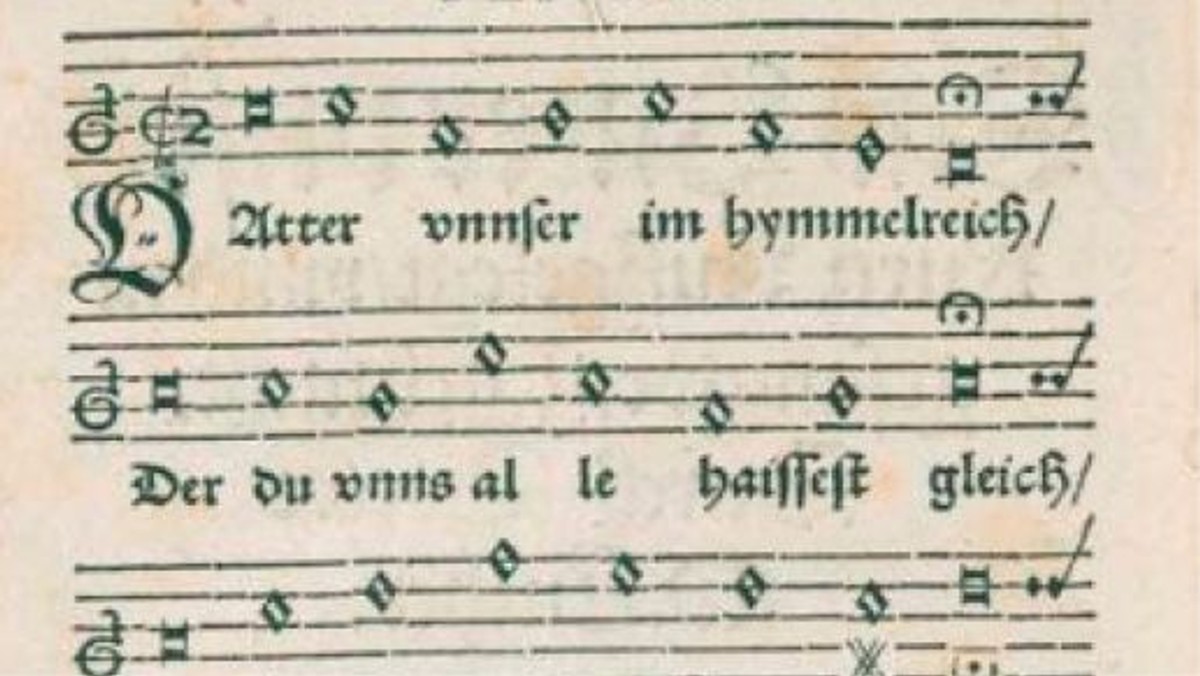 VAtter vnnser im hymmelreich/
Der du vnns al le haissest gleich/